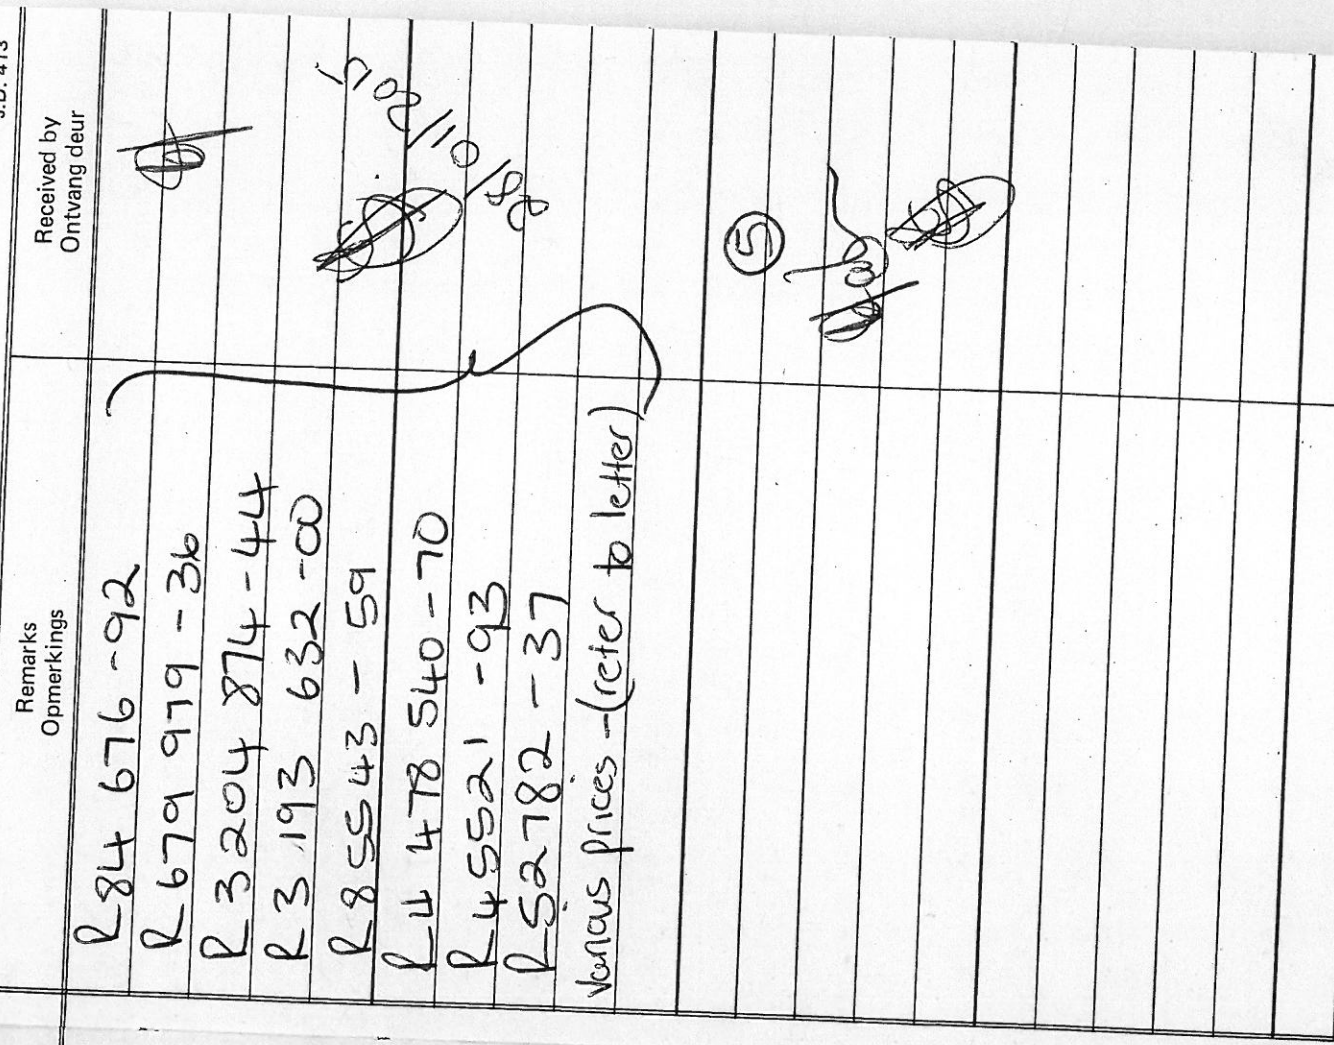 J.D. 413
Remarks
Opmerkings
Received by
Ontvang deur
R84 676-92
R679 979-36
R3 204 874-44
R3 193 632-00
R85543-59
R4 478 540-70
R45521-93
R52782-37
Various prices-(refer to letter)
5